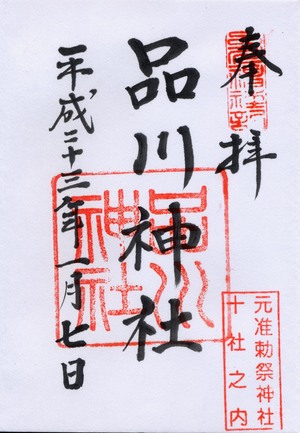 奉拝
品川神社
平成二十三年一月七日
品川神社
元准勅祭神社
十社之内